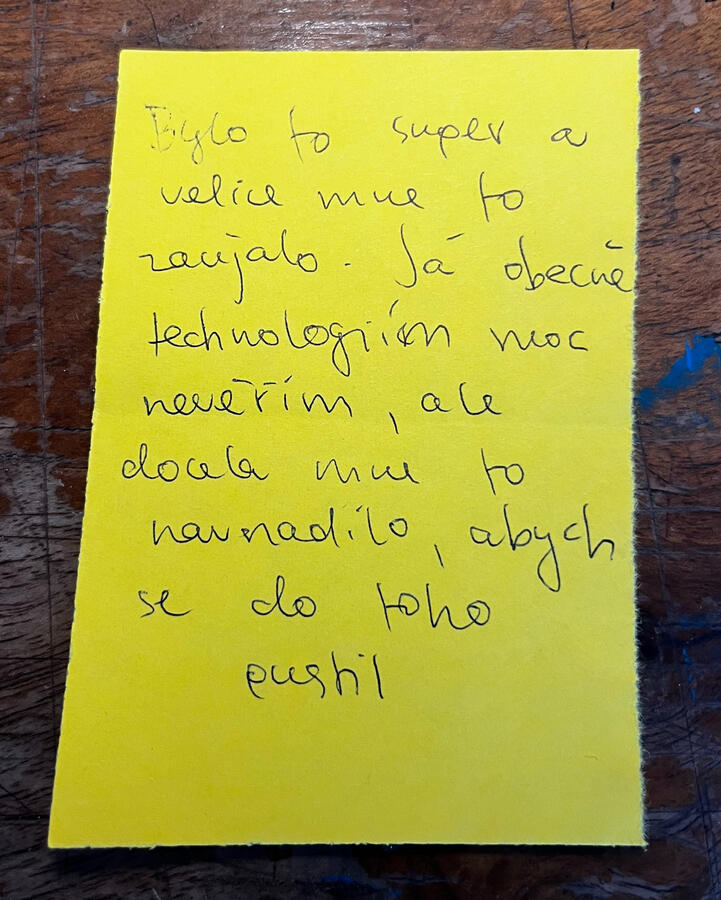 Bylo to super a
velice mne to
zaujalo. Já obecně
technologiím moc
nevěřím, ale
docela mne to
navnadilo, abych
se do toho
pustil